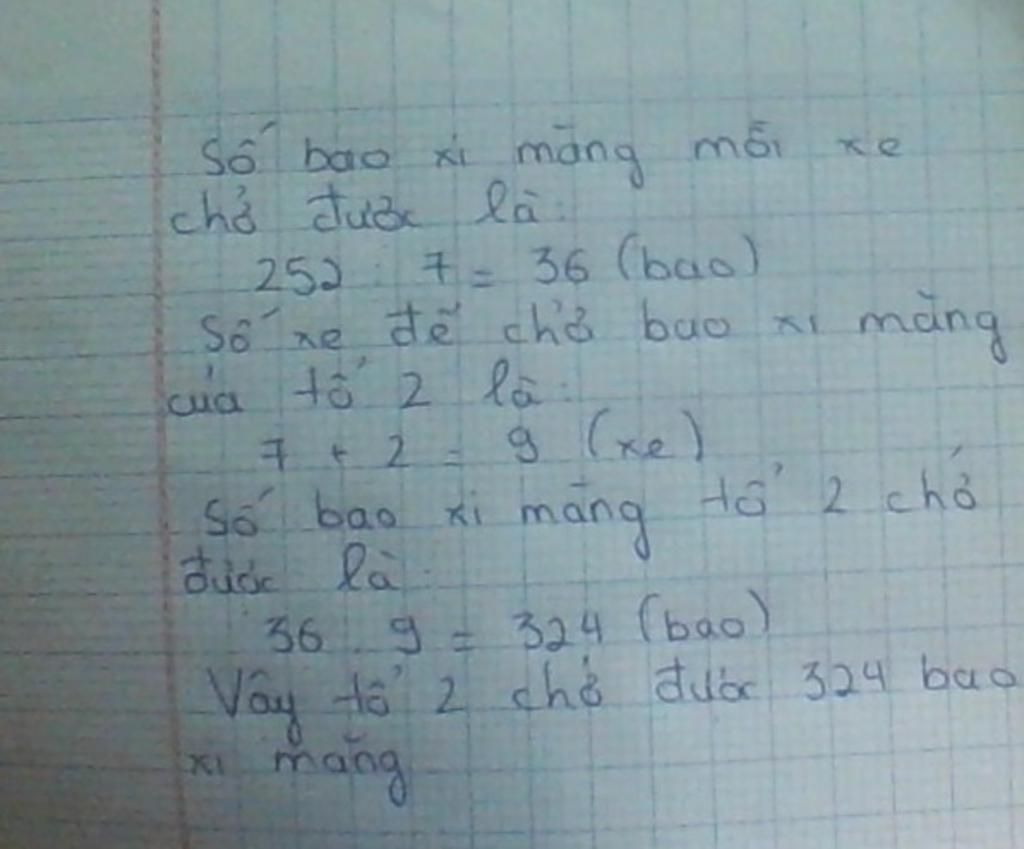 Số bao xi măng mỗi xe
chở được là:
252 : 7 = 36 (bao)
Số xe để chở bao xi măng
của tổ 2 là:
7 + 2 = 9 (xe)
Số bao xi măng tổ 2 chở
được là:
36 . 9 = 324 (bao)
Vậy tổ 2 chở được 324 bao
xi măng